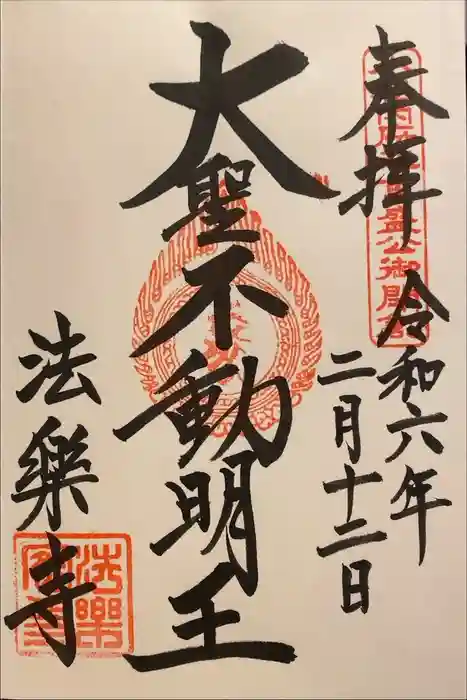 奉拝
令和六年
二月十二日
大聖不動明王
法樂寺